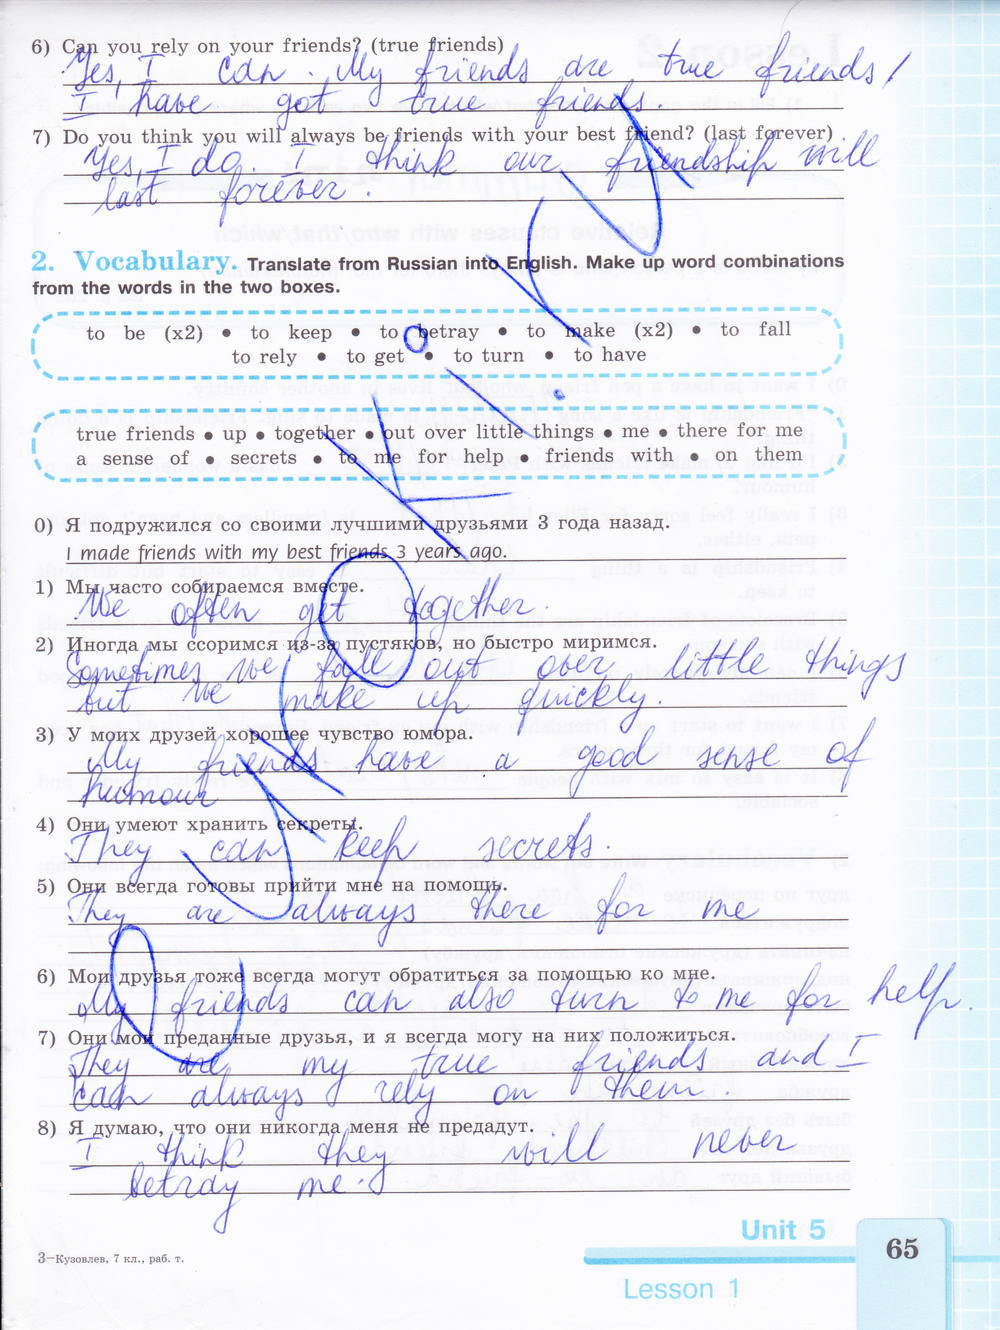 6) Can you rely on your friends? (true friends)
Yes, I can. My friends are true friends /
I have got true friends.
7) Do you think you will always be friends with your best friend? (last forever)
Yes, I do. I think our friendship will
last forever.
2. Vocabulary. Translate from Russian into English. Make up word combinations
from the words in the two boxes.
to be (x2) • to keep • to betray • to make (x2) • to fall
to rely • to get • to turn • to have
true friends • up • together • out over little things • me • there for me
a sense of • secrets • to me for help • friends with • on them
0) Я подружился со своими лучшими друзьями 3 года назад.
I made friends with my best friends 3 years ago.
1) Мы часто собираемся вместе.
We often get together.
2) Иногда мы ссоримся из-за пустяков, но быстро миримся.
Sometimes we fall out over little things
but we make up quickly.
3) У моих друзей хорошее чувство юмора.
My friends have a good sense of
humour
4) Они умеют хранить секреты.
They can keep secrets.
5) Они всегда готовы прийти мне на помощь.
They are always there for me
6) Мои друзья тоже всегда могут обратиться за помощью ко мне.
My friends can also turn to me for help.
7) Они мои преданные друзья, и я всегда могу на них положиться.
They are my true friends and I
can always rely on them.
8) Я думаю, что они никогда меня не предадут.
I think they will never
betray me.
3–Кузовлев, 7 кл., раб. т.
Unit 5
65
Lesson 1